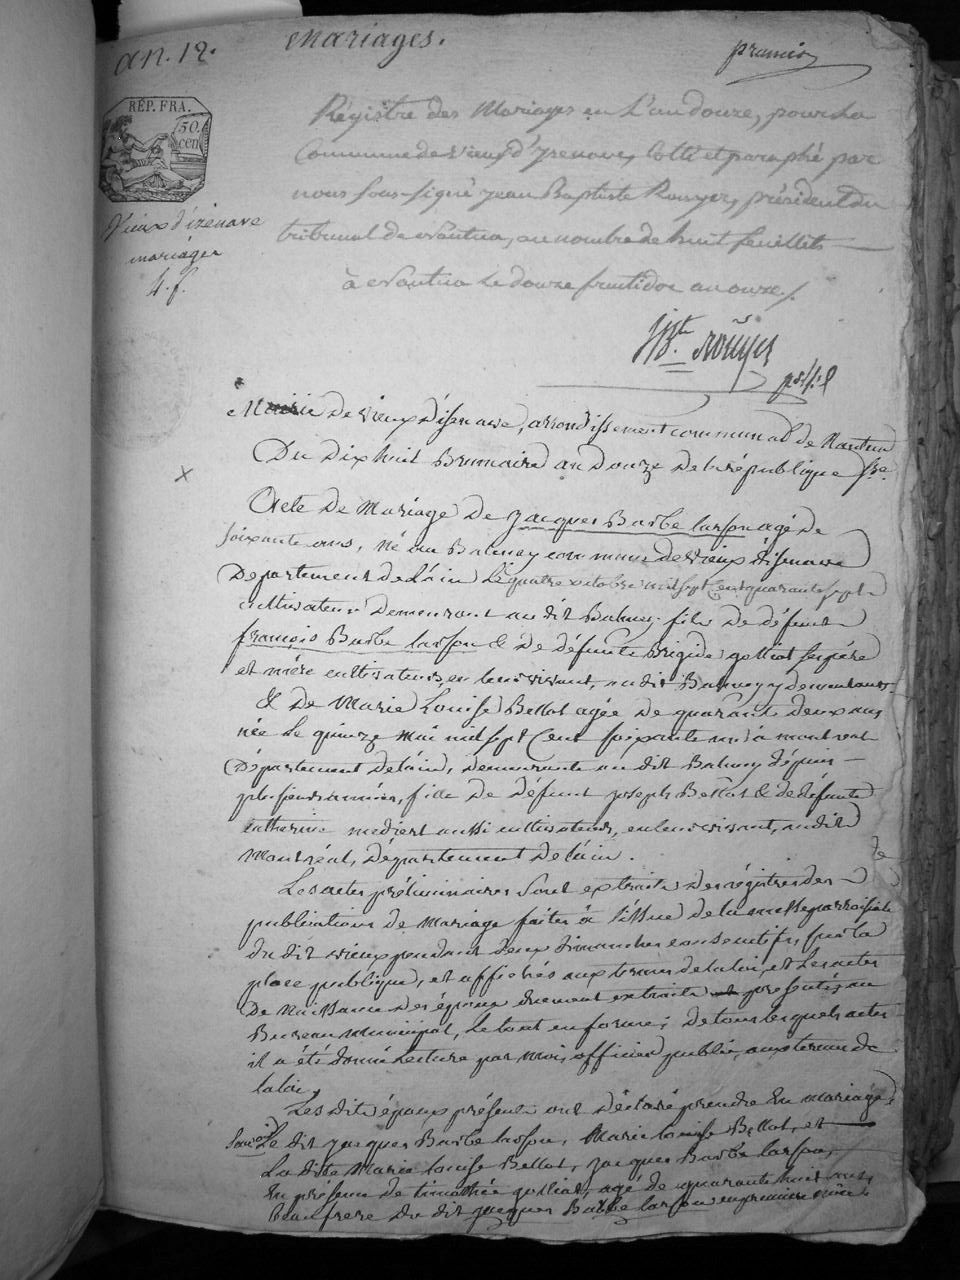 an. 12.
Mariages.
premier
RÉP. FRA.
50. cen
Vieux d'izenave
mariages
4. f.
Régistre des Mariages en L'an douze, pour La
Commune de vieux d'Izenave, Cotté et paraphé par
nous sous-signé Jean Baptiste Rouyer, président du
tribunal de Nantua, au nombre de huit feuillets
à Nantua Le douze fructidor an onze.
J. B.te Rouyer
Mairie De vieux d'isenave, arrondissement communal de Nantua
Du Dix huit Brumaire an Douze De la république f.se
Acte De Mariage De jacques Barbe larson agé De
soixante ans, né au Balmey commune de vieux d'isenave
Departement de L'ain Le quatre octobre mil sept Cent quarante sept
cultivateur Demeurant au dit Balmey fils De défunt
françois Barbe larson & De défunte Brigide golliat ses père
et mère cultivateurs, en leur vivant, au dit Balmey y demeurant.
& De Marie Louise Bellot agée De quarante deux ans
née Le quinze mai mil sept Cent soixante un à montréal
Département De l'ain, Demeurante au dit Balmey depuis
plusieurs années, fille De Défunt joseph Bellot & de défunte
catherine aussi cultivateurs, en leur vivant, au dit
Montréal, Département De l'ain.
Les actes préliminaires sont extraits Des régistres des
publications de Mariage faites à l'issue de la messe paroissiale
du dit vieux pendant deux Dimanches consecutifs, sur la
place publique, et affichés aux termes de la loi, et Les actes
De Naissance Des époux duement extraits et présentés au
Bureau Municipal, Le tout en forme; De tous lesquels actes
il a été donné Lecture par moi, officier public, aux termes de
la loi,
Les dits époux présents ont Déclaré prendre En mariage
Savoir Le dit jacques Barbe larson, Marie louise Bellot, et
La dite Marie louise Bellot, jacques Barbe larson,
En présence De timothée golliat, agé de quarante huit ans,
Beau frere Du dit jacques Barbe larson